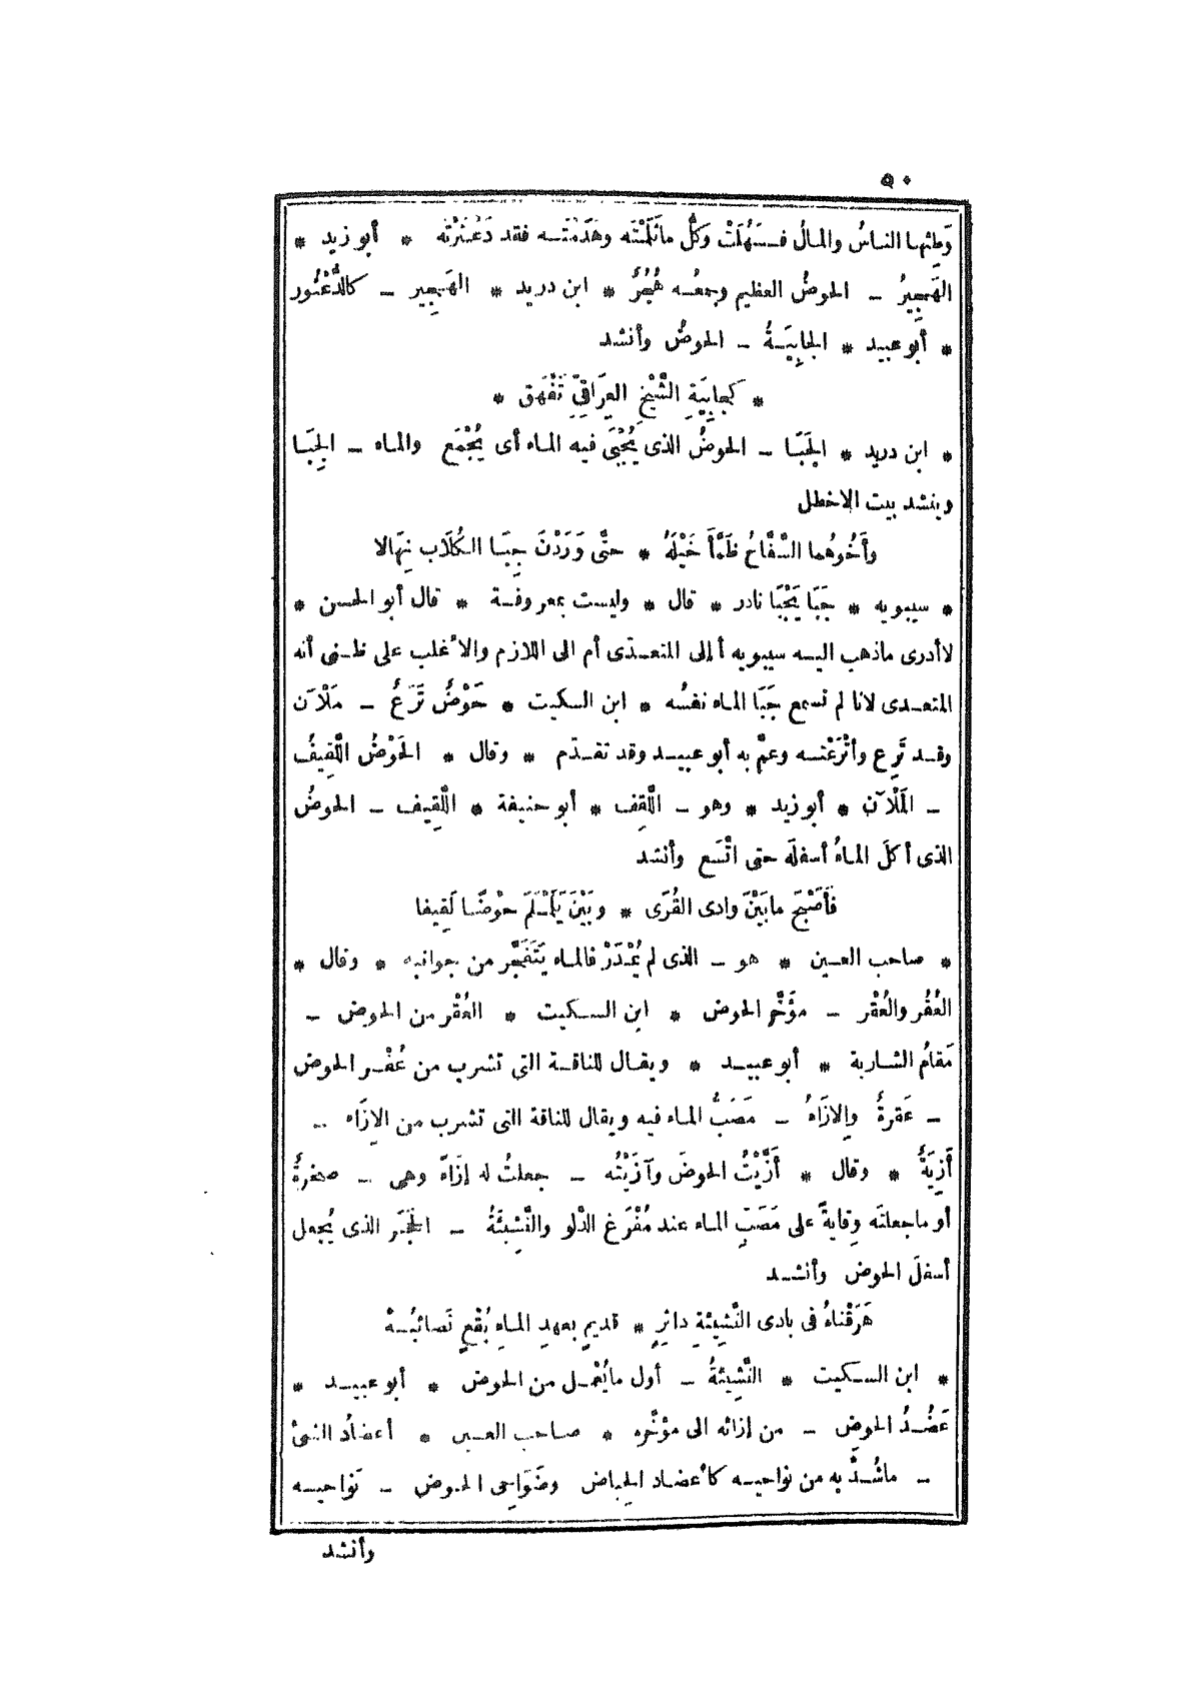 ٥٠
وَطِئَها الناسُ والمالُ فَسَهُلَتْ وكلُّ ماثَلَمْتَه وهَدَمْتَه فقد دَعْثَرْتَه * أبو زيد *
الهَجِيرُ - الحوضُ العظيم وجمعُه هُجُرٌ * ابن دريد * الهَجِير - كالدُّعْثُور
* أبو عبيد * الجابِيَةُ - الحوضُ وأنشد
* كجابِيَةِ الشَّيْخِ العِرَاقِيِّ تَفْهَق *
* ابن دريد * الجَبَا - الحوضُ الذى يُجْبَى فيه الماء أى يُجْمَع والماء - الجِبَا
وينشد بيت الاخطل
وأَخُوهُما السَّفَّاحُ ظَمَّأَ خَيْلَهُ * حتَّى وَرَدْنَ جِبَا الكُلَابِ نِهَالا
* سيبويه * جَبَا يَجْبَا نادر * قال * وليست بمعروفة * قال أبو الحسن *
لاأدرى ماذهب اليه سيبويه أإلى المتعدّى أم الى اللازم والأغلب على ظنى أنه
المتعدى لانا لم نسمع جَبَا الماء نفسُه * ابن السكيت * حَوْضٌ تَرَعٌ - مَلْآن
وقد تَرِع وأتْرَعْته وعمَّ به أبو عبيد وقد تقدّم * وقال * الحَوْضُ اللَّقِيفُ
- المَلْآن * أبو زيد * وهو - اللَّقِف * أبو حنيفة * اللَّقِيف - الحوضُ
الذى أكلَ الماءُ أسفلَه حتى اتَّسَع وأنشد
فأَصْبَحَ مابَيْنَ وادى القُرَى * وبَيْنَ يَلَمْلَمَ حَوْضًا لَقِيفا
* صاحب العين * هو - الذى لم يُمْدَرْ فالماء يَتَفَجَّر من جوانبه * وقال *
العُقُر والعُقْر - مؤَخَّر الحوض * ابن السكيت * العُقْر من الحوض -
مَقامُ الشاربة * أبو عبيد * ويقال للناقة التى تشرب من عُقْر الحوض
- عَقِرةٌ والازَاءُ - مَصَبُّ الماء فيه ويقال للناقة التى تشرب من الازَاء -
أَزِيَةٌ * وقال * أَزَّيْتُ الحوضَ وآزَيْتُه - جعلتُ له إزَاءً وهى - صخرةٌ
أو ماجعلتَه وِقايةً على مَصَبِّ الماء عند مُفْرَغ الدَّلو والنَّشِيئَةُ - الحَجَر الذى يُجعل
أسفلَ الحوض وأنشد
هَرَقْناهُ فى بادى النَّشِيئةِ داثِرٍ * قديمٍ بعهدِ الماءِ بُقْعٍ نَصائبُهْ
* ابن السكيت * النَّشِيئةُ - أول مايُعْمل من الحوض * أبو عبيد *
عَضُدُ الحوض - من إزائه الى مؤخَّره * صاحب العين * أعضادُ الشئ
- ماشُدَّ به من نواحيه كأعضاد الحِياض وضَوَاحِى الحوض - نَواحيه
وأنشد